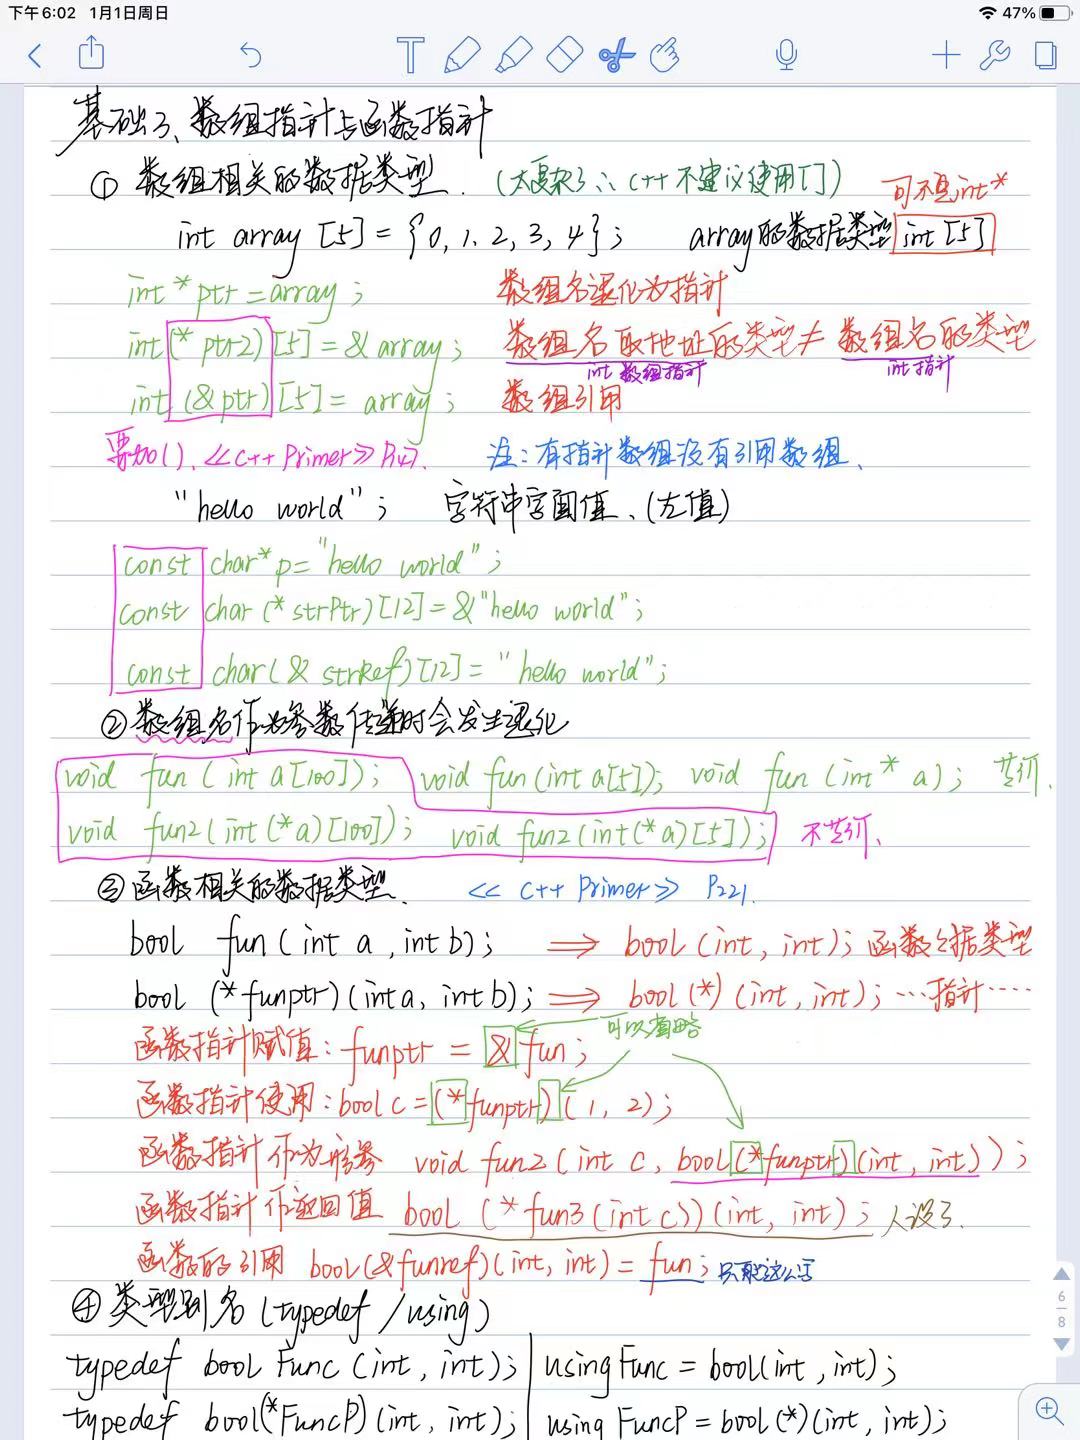 下午6:02 1月1日周日
47%
基础3、数组指针与函数指针
① 数组相关的数据类型. (太复杂了∴C++不建议使用[])
可不是int*
int array [5] = {0, 1, 2, 3, 4}; array的数据类型 int [5]
int * ptr = array; 数组名退化为指针
int (* ptr2) [5] = & array; 数组名取地址的类型 ≠ 数组名的类型
int 数组指针 int 指针
int (&ptr) [5] = array; 数组引用
要加(). <<C++ Primer>> P147. 注:有指针数组没有引用数组.
"hello world"; 字符串字面值、(左值)
const char* p= "hello world";
const char (* strPtr) [12] = &"hello world";
const char (& strRef) [12] = "hello world";
② 数组名作为参数传递时会发生退化
void fun (int a[100]); void fun(int a[5]); void fun (int* a); 等价.
void fun2(int (*a) [100]); void fun2(int(*a)[5]); 不等价.
③ 函数相关的数据类型. << C++ Primer >> P221.
bool fun ( int a , int b); ⇒ bool (int, int); 函数数据类型
bool (*funptr)(int a, int b); ⇒ bool (*) (int, int); …指针……
可以省略
函数指针赋值: funptr = & fun;
函数指针使用: bool c = (*funptr) (1, 2);
函数指针作为形参 void fun2 (int c, bool (*funptr) (int, int));
函数指针作返回值 bool (*fun3 (int c)) (int, int); 人没了.
函数的引用 bool (&funref) (int, int) = fun; 只能这么写
④ 类型别名 (typedef / using)
typedef bool Func (int, int); using Func = bool(int, int);
typedef bool(*FuncP) (int, int); using FuncP = bool (*)(int, int);
6
8